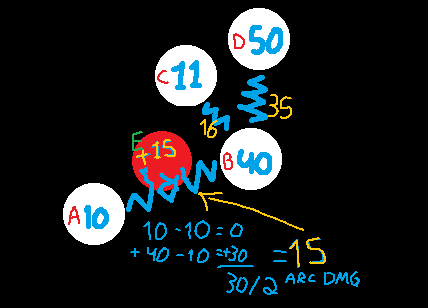 D 50
C 11
35
16
E
+15
B 40
A 10
10 - 10 = 0
+ 40 - 10 = +30
30/2
= 15
ARC DMG